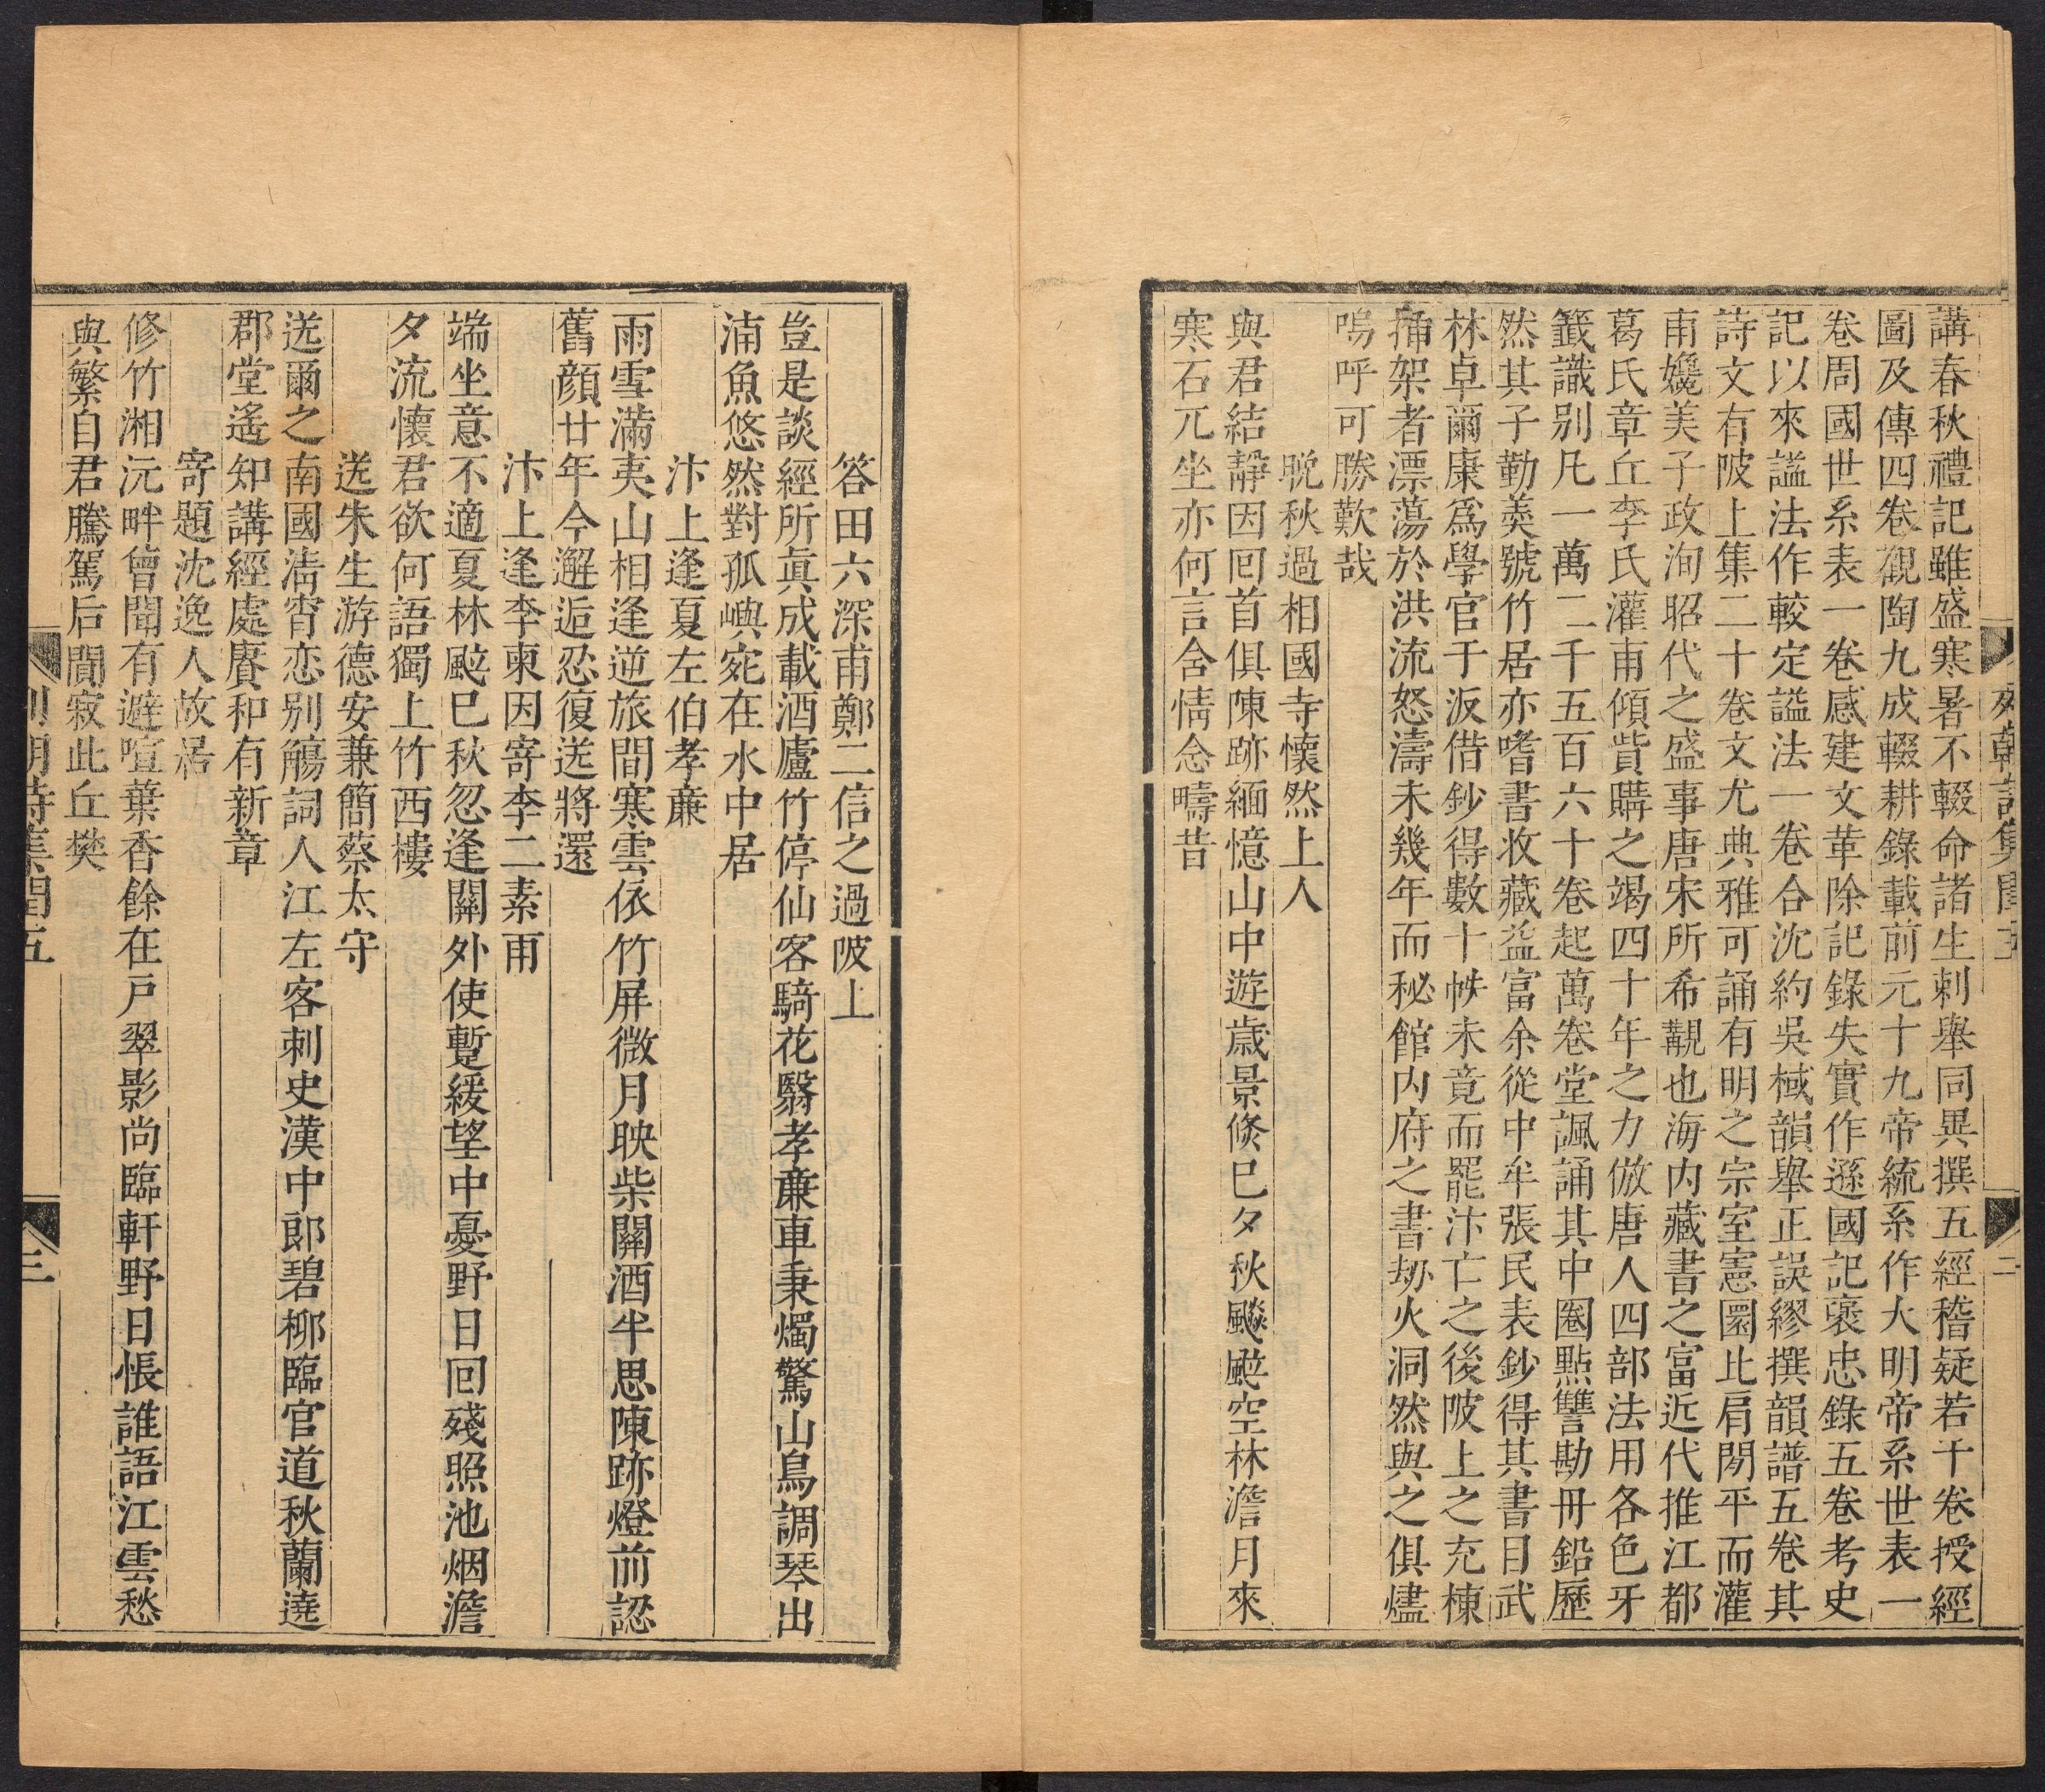 講春秋禮記雖盛寒暑不輟命諸生剌舉同異撰五經稽疑若干卷授經
圖及傳四卷觀陶九成輟耕錄載前元十九帝統系作大明帝系世表一
卷周國世系表一卷感建文革除記錄失實作遜國記褒忠錄五卷考史
記以來謚法作較定謚法一卷合沈約吳棫韻舉正誤繆撰韻譜五卷其
詩文有陂上集二十卷文尤典雅可誦有明之宗室憲園比肩閒平而灌
甫孅美子政洵昭代之盛事唐宋所希覯也海內藏書之富近代推江都
葛氏章丘李氏灌甫傾貲購之竭四十年之力倣唐人四部法用各色牙
籤識别凡一萬二千五百六十卷起萬卷堂諷誦其中圈點讐勘丹鉛歷
然其子勤羮號竹居亦嗜書收藏益富余從中牟張民表鈔得其書目武
林卓爾康爲學官于汳借鈔得數十帙未竟而罷汴亡之後陂上之充棟
揷架者漂蕩於洪流怒濤未幾年而秘館内府之書刼火洞然與之俱燼
嗚呼可勝歎哉
晩秋過相國寺懷然上人
與君結靜因回首俱陳跡緬憶山中遊歲景倐巳夕秋飈颭空林澹月來
寒石兀坐亦何言含情念疇昔
列朝詩集閏五
二
答田六深甫鄭二信之過陂上
豈是談經所眞成載酒廬竹停仙客騎花翳孝亷車秉燭驚山鳥調琴出
湳魚悠然對孤嶼宛在水中居
汴上逢夏左伯孝亷
雨雪滿夷山相逢逆旅間寒雲依竹屏微月映柴關酒半思陳跡燈前認
舊顔廿年今邂逅忍復送將還
汴上逢李柬因寄李二素甫
端坐意不適夏林颭巳秋忽逢關外使暫緩望中憂野日回殘照池烟澹
夕流懷君欲何語獨上竹西樓
送朱生游德安兼簡蔡太守
送爾之南國淸宵恋别觴詞人江左客刺史漢中郎碧柳臨官道秋蘭遶
郡堂遙知講經處賡和有新章
寄題沈逸人故居
修竹湘沅畔曾聞有避喧葉香餘在戸翠影尚臨軒野日悵誰語江雲愁
與繁自君騰駕后間寂此丘樊
列朝詩集閏五
三